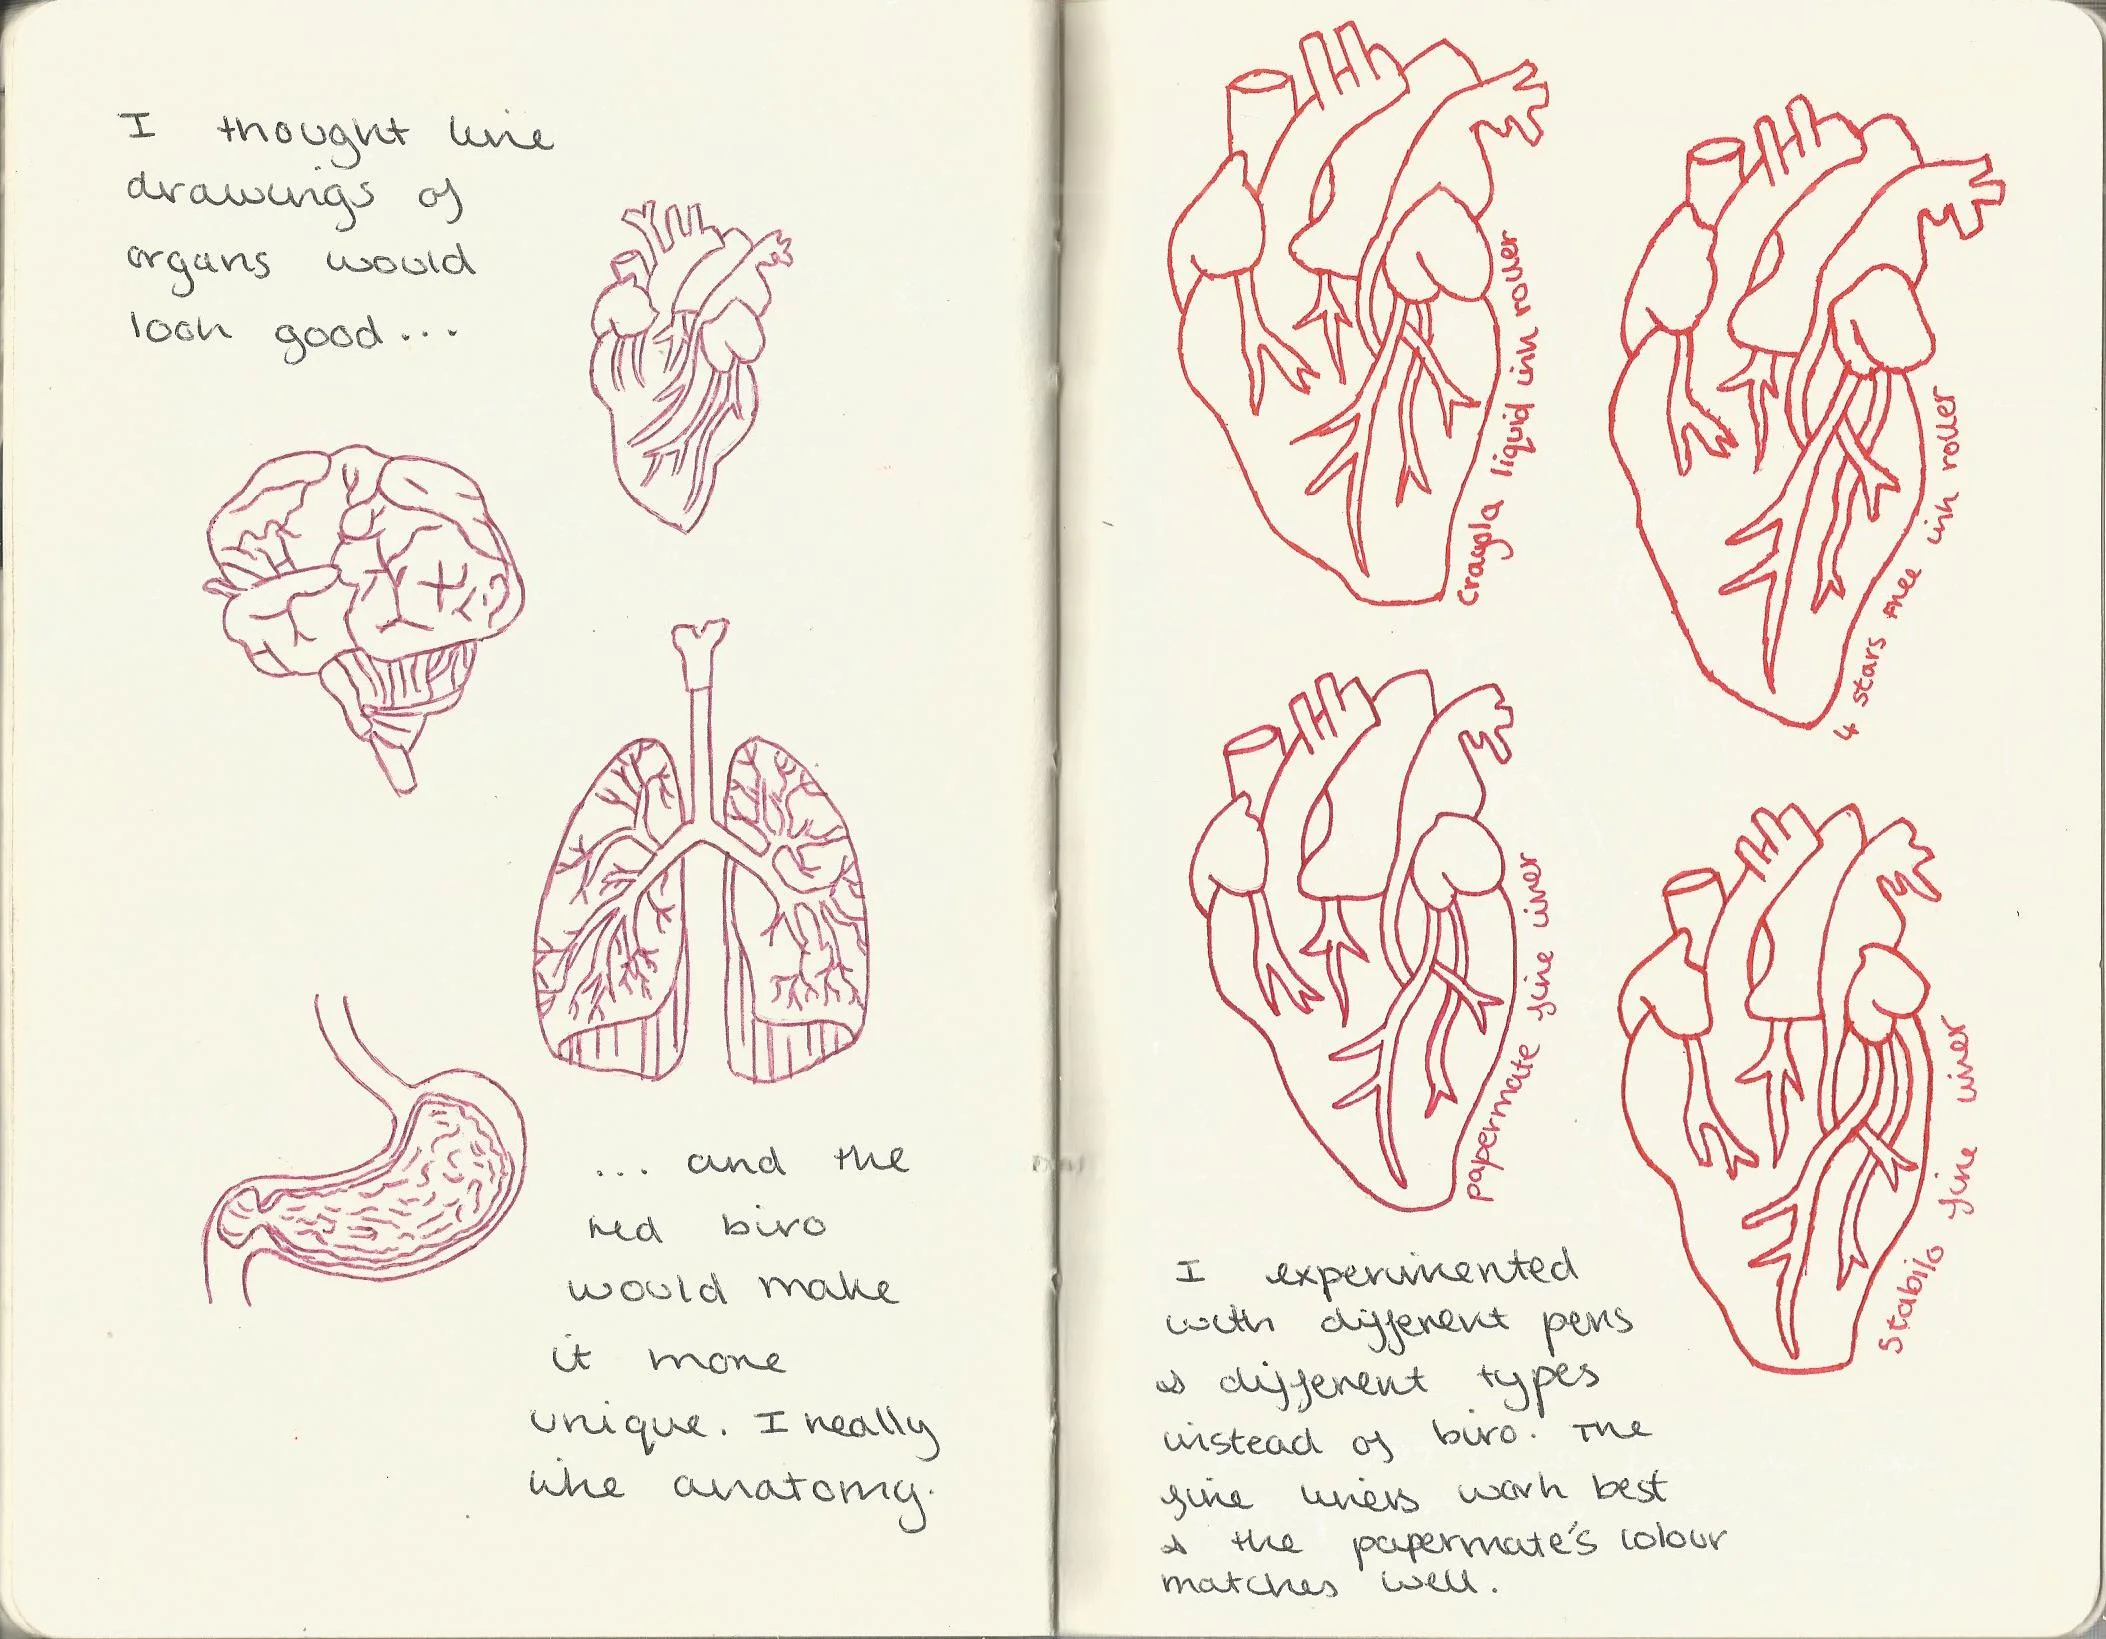 I thought line
drawings of
organs would
look good...
... and the
red biro
would make
it more
unique. I really
like anatomy.
Crayola liquid ink roller
4 stars free ink roller
papermate fine liner
Stabilo fine liner
I experimented
with different pens
& different types
instead of biro. The
fine liners work best
& the papermate's colour
matches well.